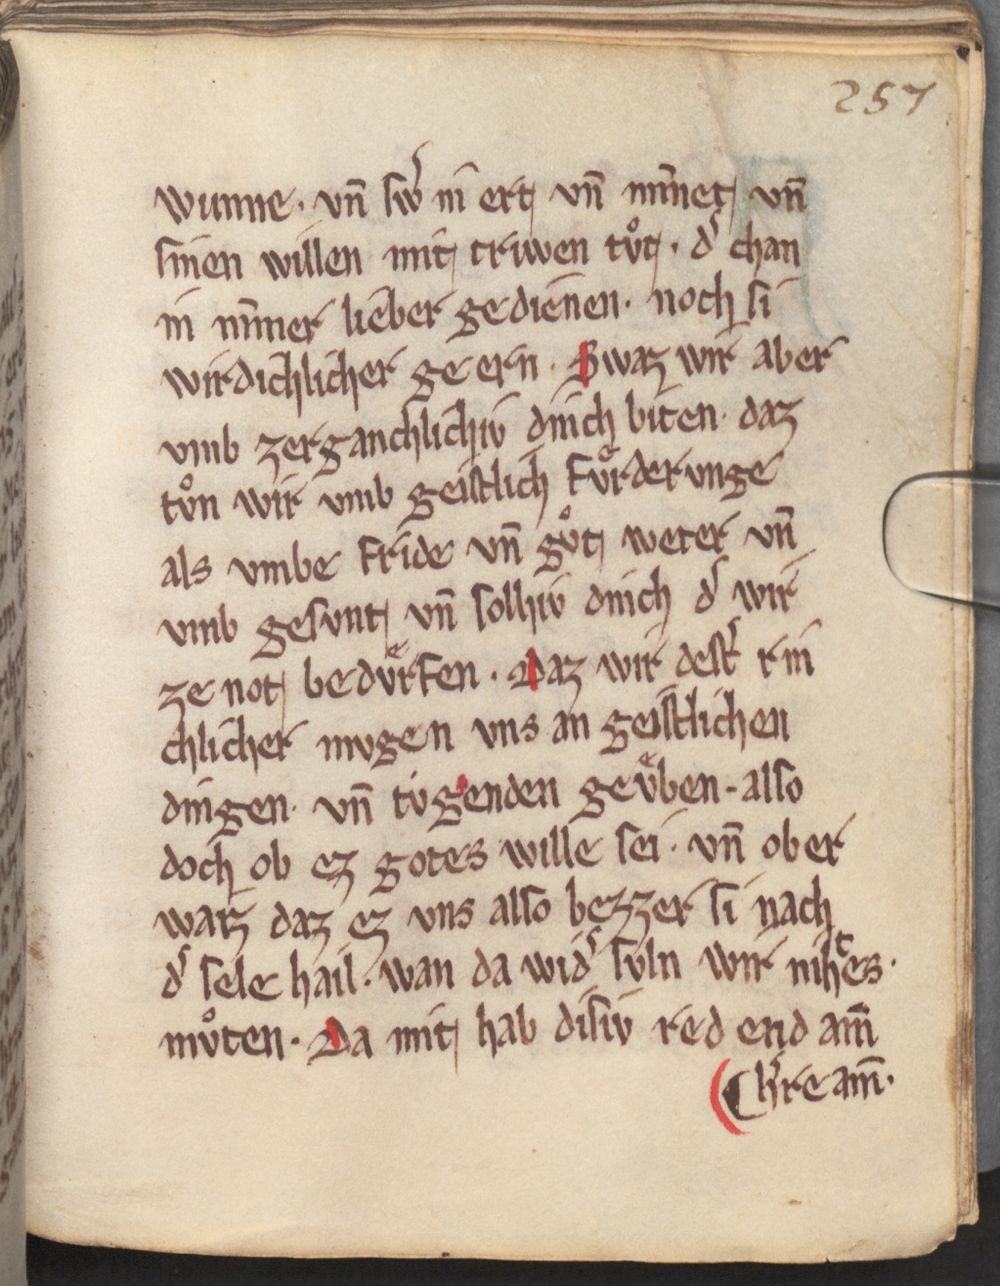 257
wunne · vn̄ sw̓ in ert vn̄ minnet vn̄
sinen willen mit triwen tuͦt · d̓ chan
in nim̄er lieber gedienen · noch si
wirdichlicher ge ern · Swaz wir aber
vmb zerganchlichiv dinch biten · daz
tuͦn wir vmb geistlich fuͤrderunge
als vmbe fride vn̄ guͦt weter vn̄
vmb gesunt vn̄ solhiv dinch d̓ wir
ze not beduͤrfen · Daz wir dest̓ rin
chlicher mugen vns an geistlichen
dingen · vn̄ tugenden geuͤben · also
doch ob ez gotes wille sei · vn̄ ob er
waiz daz ez vns also bezzer si nach
d̓ sele hail · wan da wid̓ suln wir nihtes ·
muͦten · Da mit hab disiv red end am̄
Ch̓re am̄ ·